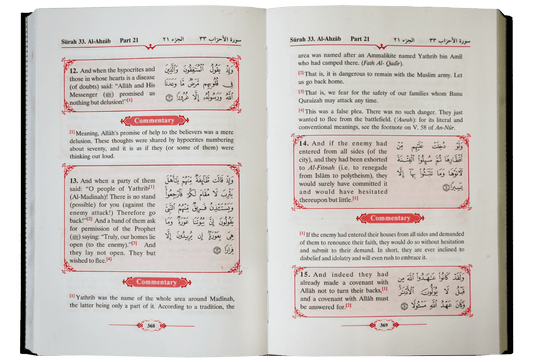 Sûrah 33. Al-Ahzâb Part 21 الجزء ٢١ سورة الأحزاب ٣٣
12. And when the hypocrites and
those in whose hearts is a disease
(of doubts) said: "Allâh and His
Messenger (ﷺ) promised us
nothing but delusion!"[1]
وَإِذْ يَقُولُ الْمُنَافِقُونَ وَالَّذِينَ
فِي قُلُوبِهِم مَّرَضٌ مَّا وَعَدَنَا
اللَّهُ وَرَسُولُهُ إِلَّا غُرُورًا ١٢
Commentary
[1] Meaning, Allâh's promise of help to the believers was a mere
delusion. These thoughts were shared by hypocrites numbering
about seventy, and it is as if they (or some of them) were
thinking out loud.
13. And when a party of them
said: "O people of Yathrib[1]
(Al-Madinah)! There is no stand
(possible) for you (against the
enemy attack!) Therefore go
back!"[2] And a band of them ask
for permission of the Prophet
(ﷺ) saying: "Truly, our homes lie
open (to the enemy)."[3] And
they lay not open. They but
wished to flee.[4]
وَإِذْ قَالَت طَّائِفَةٌ مِّنْهُمْ يَا أَهْلَ
يَثْرِبَ لَا مُقَامَ لَكُمْ فَارْجِعُوا
وَيَسْتَأْذِنُ فَرِيقٌ مِّنْهُمُ النَّبِيَّ
يَقُولُونَ إِنَّ بُيُوتَنَا عَوْرَةٌ وَمَا
هِيَ بِعَوْرَةٍ إِن يُرِيدُونَ إِلَّا
فِرَارًا ١٣
Commentary
[1] Yathrib was the name of the whole area around Madînah,
the latter being only a part of it. According to a tradition, the
368
Sûrah 33. Al-Ahzâb Part 21 الجزء ٢١ سورة الأحزاب ٣٣
area was named after an Ammalikite named Yathrib bin Amîl
who had camped there. (Fath Al- Qadîr).
[2] That is, it is dangerous to remain with the Muslim army. Let
us go back home.
[3] That is, we fear for the safety of our families whom Banu
Quraizah may attack any time.
[4] This was a false plea. There was no such danger. They just
wanted to flee from the battlefield. ('Awrah): for its literal and
conventional meanings, see the footnote on V. 58 of An-Nûr.
14. And if the enemy had
entered from all sides (of the
city), and they had been exhorted
to Al-Fitnah (i.e. to renegade
from Islâm to polytheism), they
would surely have committed it
and would have hesitated
thereupon but little.[1]
وَلَوْ دُخِلَتْ عَلَيْهِم مِّنْ
أَقْطَارِهَا ثُمَّ سُئِلُوا الْفِتْنَةَ
لَآتَوْهَا وَمَا تَلَبَّثُوا بِهَا إِلَّا
يَسِيرًا ١٤
Commentary
[1] If the enemy had entered their houses from all sides and demanded
of them to renounce their faith, they would do so without hesitation
and submit to their demand. In short, they are ever inclined to
disbelief and idolatry and will even rush to embrace it.
15. And indeed they had
already made a covenant with
Allâh not to turn their backs,[1]
and a covenant with Allâh must
be answered for.[2]
وَلَقَدْ كَانُوا عَاهَدُوا اللَّهَ مِن
قَبْلُ لَا يُوَلُّونَ الْأَدْبَارَ
وَكَانَ عَهْدُ اللَّهِ مَسْئُولًا ١٥
369